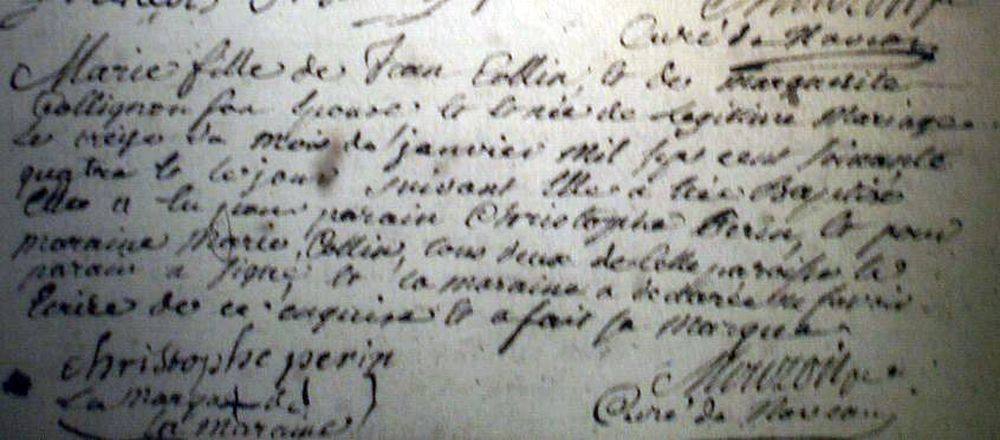 Curé de
Marie fille de Jean Collin, et de Marguerite
Collignon son épouse et est née de légitime mariage
le treize du mois de janvier mil sept cent soixante
quatre et le jour suivant elle a été Baptisée
Elle a eu pour parain Christophe Perin, et pour
maraine Marie Collin, tous deux de cette paroisse le
parain a signé et la maraine a declarée ne savoir
Ecrire de ce enquise et a fait sa marque
christophe perin
Mouzon
La marque de
La maraine
Curé de